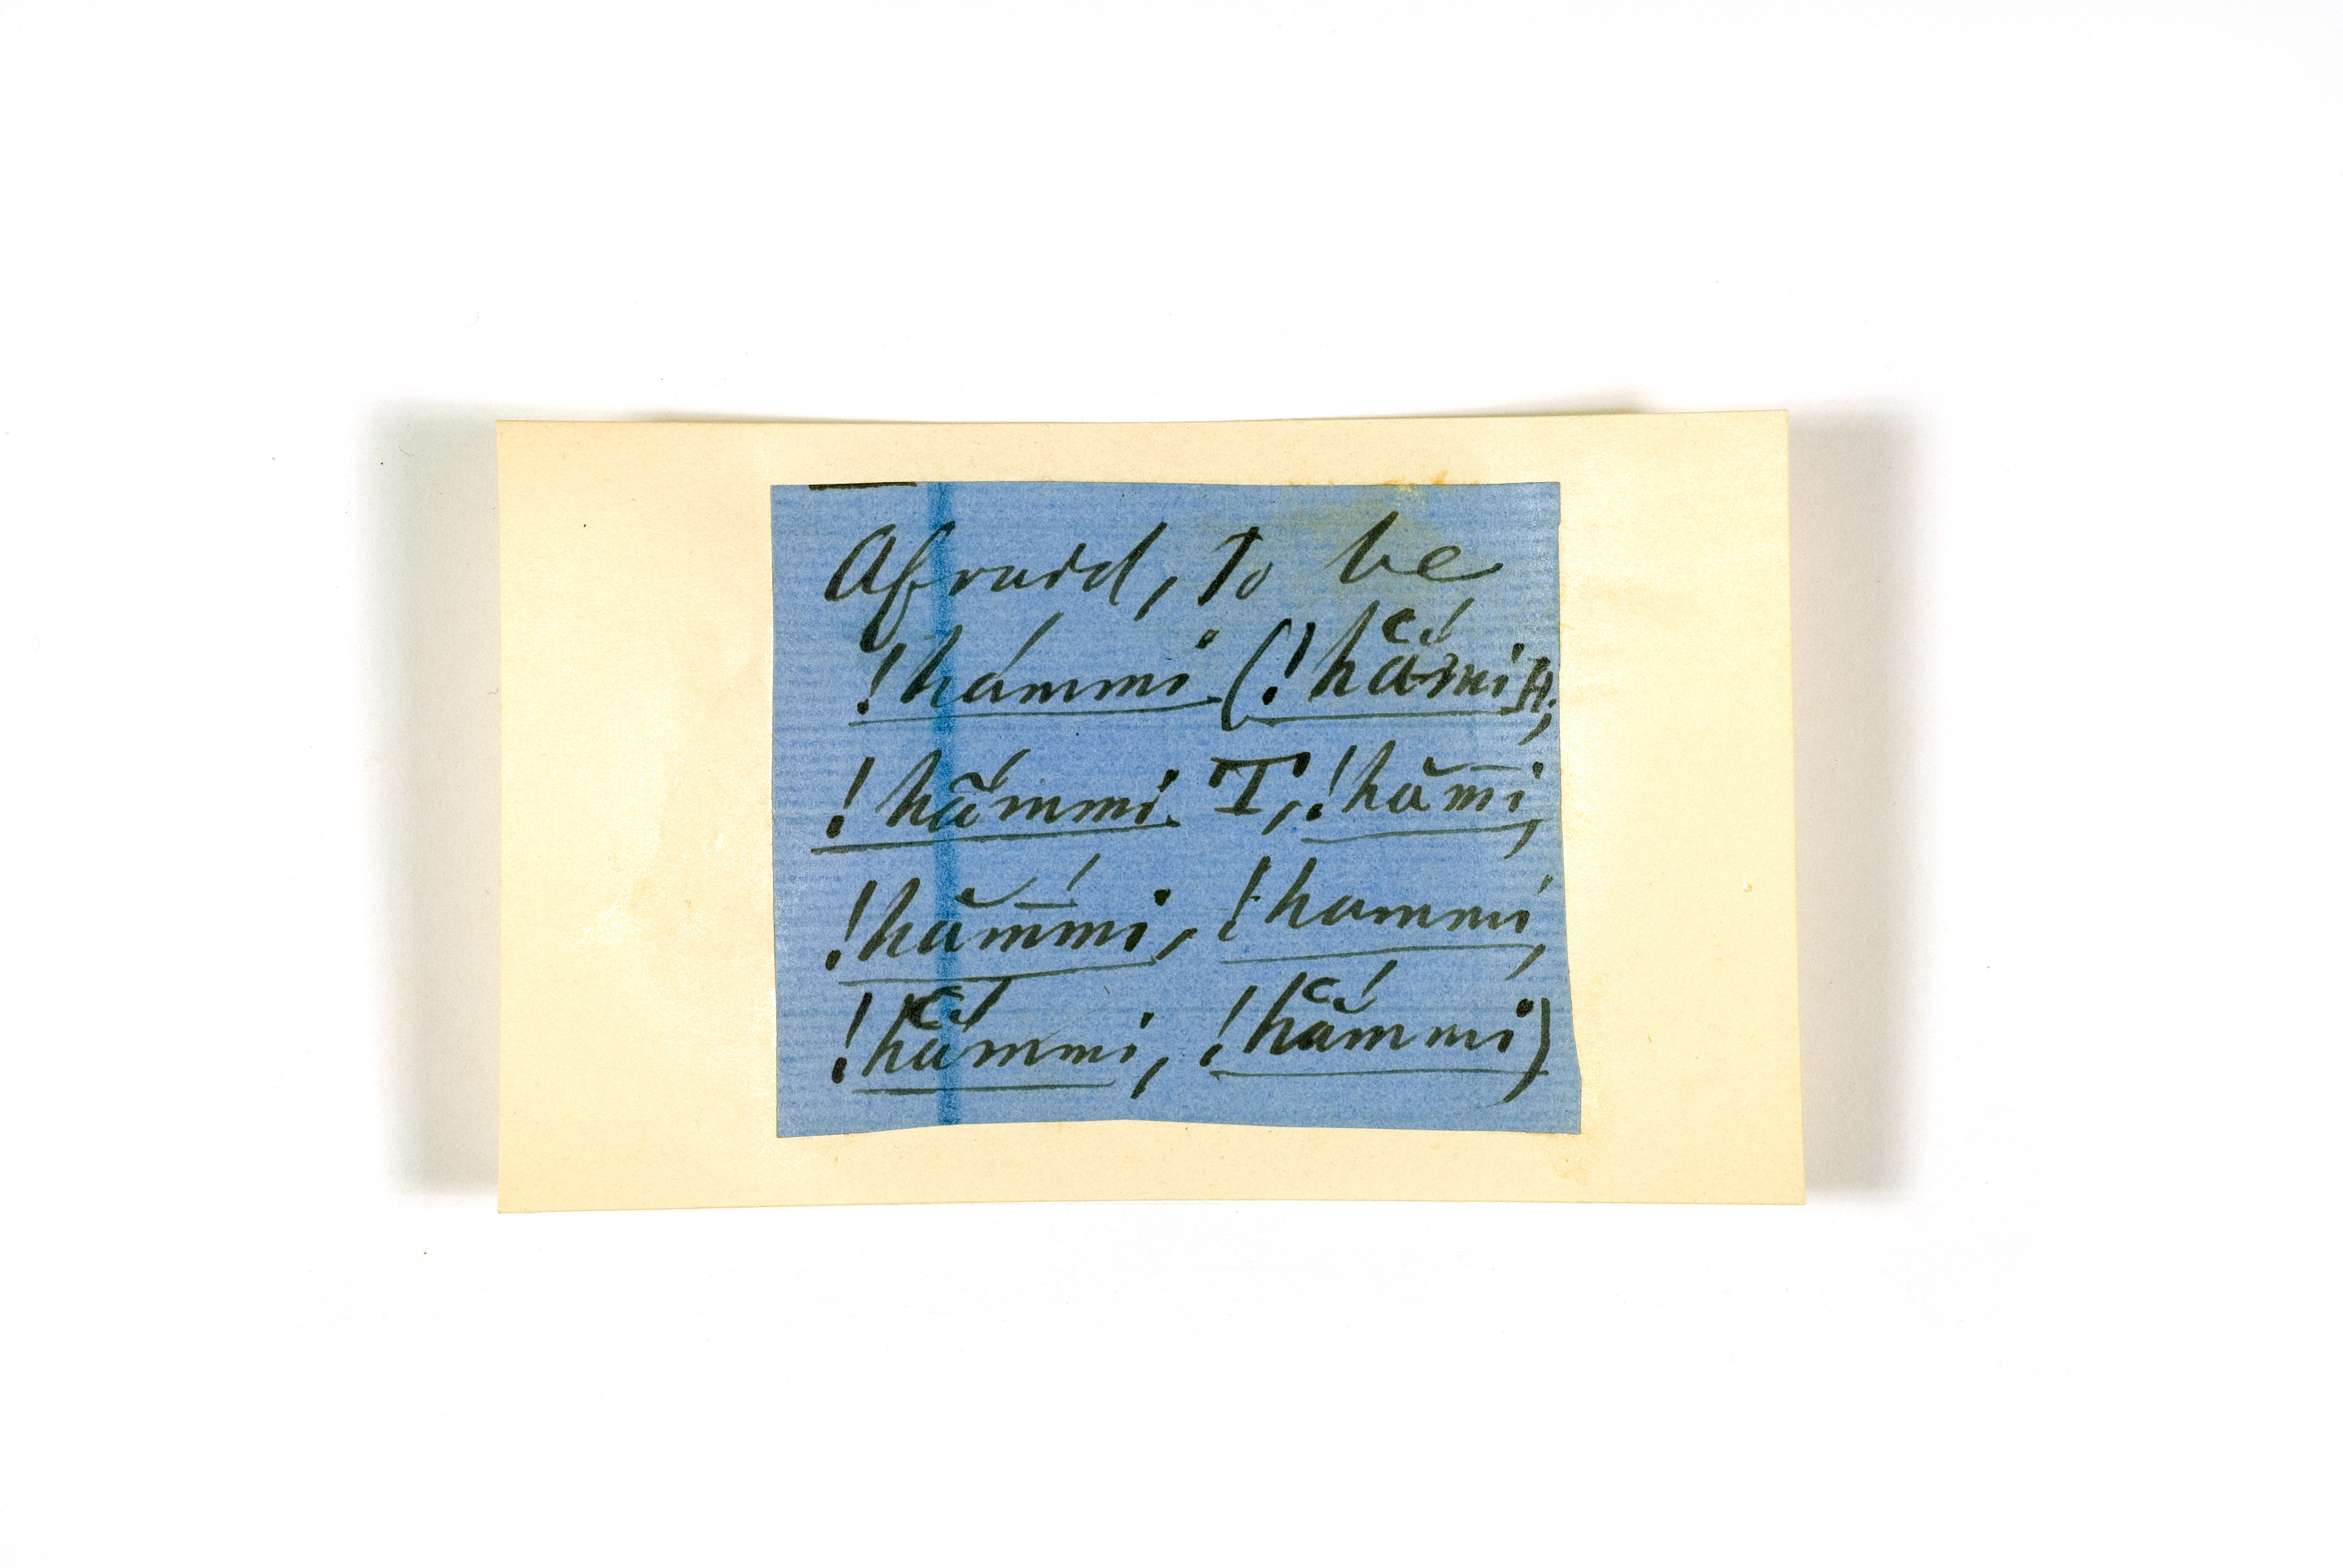 Afraid, to be
!hámmi (!hắmi H.,
!hắmmi T, !hăm̄i,
!hăm̄́mi, !hammi,
!hắmmi, !hắmmi)